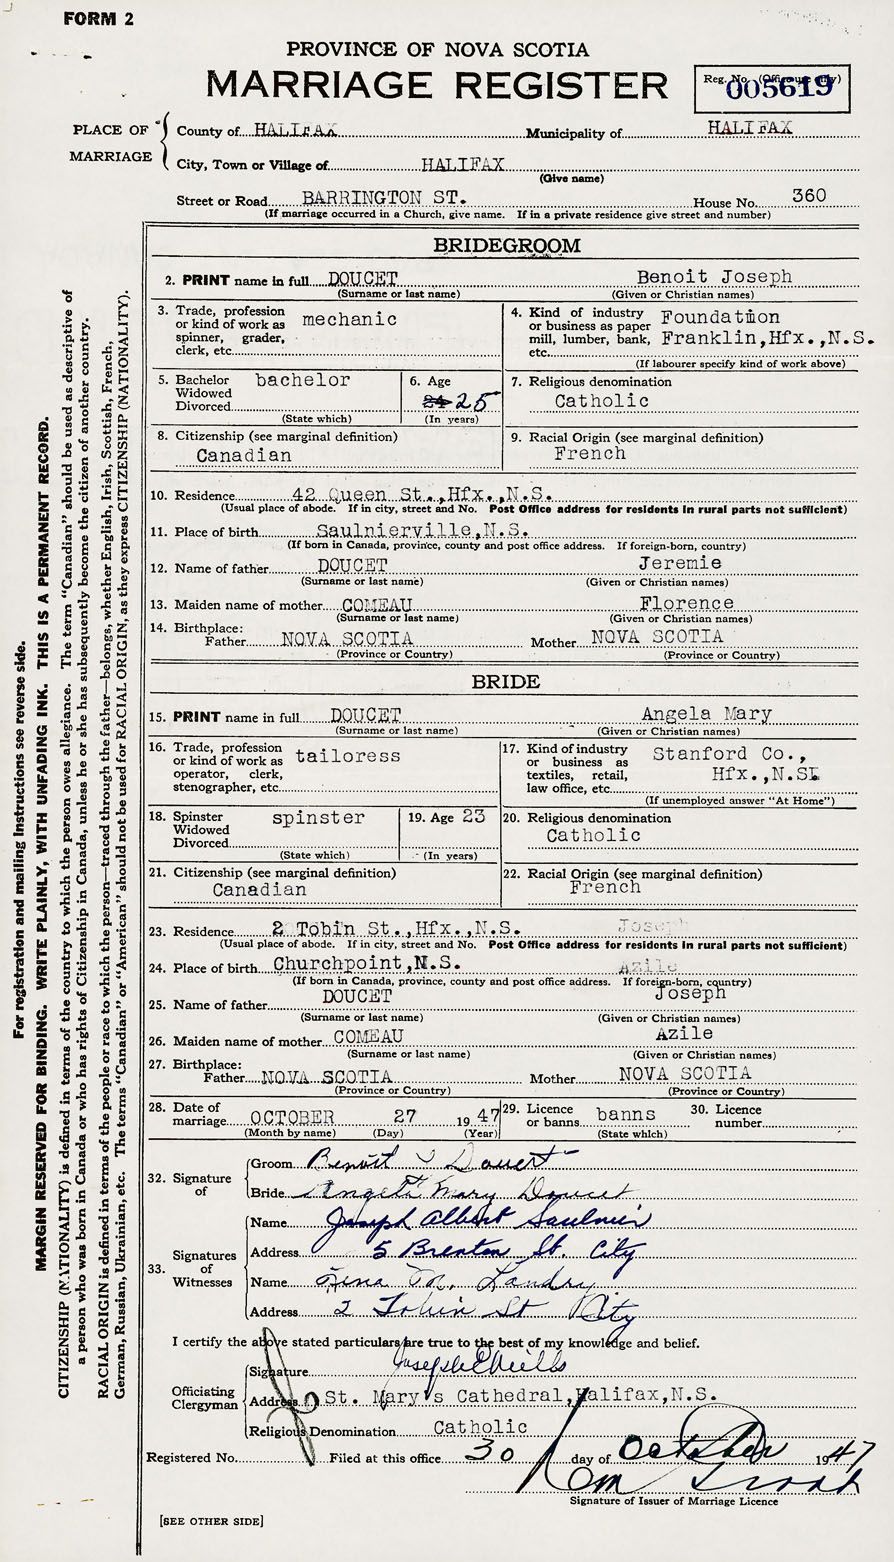 FORM 2
PROVINCE OF NOVA SCOTIA
MARRIAGE REGISTER
Reg. No. (Office use only)
005619
PLACE OF MARRIAGE
County of HALIFAX Municipality of HALIFAX
City, Town or Village of HALIFAX
(Give name)
Street or Road BARRINGTON ST. House No. 360
(If marriage occurred in a Church, give name. If in a private residence give street and number)
BRIDEGROOM
2. PRINT name in full DOUCET Benoit Joseph
(Surname or last name) (Given or Christian names)
3. Trade, profession or kind of work as spinner, grader, clerk, etc. mechanic
4. Kind of industry or business as paper mill, lumber, bank, etc. Foundation Franklin,Hfx.,N.S.
(If labourer specify kind of work above)
5. Bachelor Widowed Divorced bachelor
(State which)
6. Age 24 25
(In years)
7. Religious denomination
Catholic
8. Citizenship (see marginal definition)
Canadian
9. Racial Origin (see marginal definition)
French
10. Residence 42 Queen St.,Hfx.,N.S.
(Usual place of abode. If in city, street and No. Post Office address for residents in rural parts not sufficient)
11. Place of birth Saulnierville,N.S.
(If born in Canada, province, county and post office address. If foreign-born, country)
12. Name of father DOUCET Jeremie
(Surname or last name) (Given or Christian names)
13. Maiden name of mother COMEAU Florence
(Surname or last name) (Given or Christian names)
14. Birthplace:
Father NOVA SCOTIA Mother NOVA SCOTIA
(Province or Country) (Province or Country)
BRIDE
15. PRINT name in full DOUCET Angela Mary
(Surname or last name) (Given or Christian names)
16. Trade, profession or kind of work as operator, clerk, stenographer, etc. tailoress
17. Kind of industry or business as textiles, retail, law office, etc. Stanford Co., Hfx.,N.S.
(If unemployed answer "At Home")
18. Spinster Widowed Divorced spinster
(State which)
19. Age 23
(In years)
20. Religious denomination
Catholic
21. Citizenship (see marginal definition)
Canadian
22. Racial Origin (see marginal definition)
French
23. Residence 2 Tobin St.,Hfx.,N.S. Joseph
(Usual place of abode. If in city, street and No. Post Office address for residents in rural parts not sufficient)
24. Place of birth Churchpoint,N.S. Azile
(If born in Canada, province, county and post office address. If foreign-born, country)
25. Name of father DOUCET Joseph
(Surname or last name) (Given or Christian names)
26. Maiden name of mother COMEAU Azile
(Surname or last name) (Given or Christian names)
27. Birthplace:
Father NOVA SCOTIA Mother NOVA SCOTIA
(Province or Country) (Province or Country)
28. Date of marriage OCTOBER 27 1947
(Month by name) (Day) (Year)
29. Licence or banns banns
(State which)
30. Licence number
32. Signature of
Groom Benoit J Doucet
Bride Angela Mary Doucet
33. Signatures of Witnesses
Name Joseph Albert Saulnier
Address 5 Brenton St. City
Name Tina M. Landry
Address 2 Tobin St City
I certify the above stated particulars are true to the best of my knowledge and belief.
Officiating Clergyman
Signature Joseph E Mills
Address St. Mary's Cathedral,Halifax,N.S.
Religious Denomination Catholic
Registered No. Filed at this office 30 day of October 1947
Signature of Issuer of Marriage Licence
[SEE OTHER SIDE]
For registration and mailing instructions see reverse side.
MARGIN RESERVED FOR BINDING. WRITE PLAINLY, WITH UNFADING INK. THIS IS A PERMANENT RECORD.
CITIZENSHIP (NATIONALITY) is defined in terms of the country to which the person owes allegiance. The term "Canadian" should be used as descriptive of
a person who was born in Canada or who has rights of Citizenship in Canada, unless he or she has subsequently become the citizen of another country.
RACIAL ORIGIN is defined in terms of the people or race to which the person—traced through the father—belongs, whether English, Irish, Scottish, French,
German, Russian, Ukrainian, etc. The terms "Canadian" or "American" should not be used for RACIAL ORIGIN, as they express CITIZENSHIP (NATIONALITY).